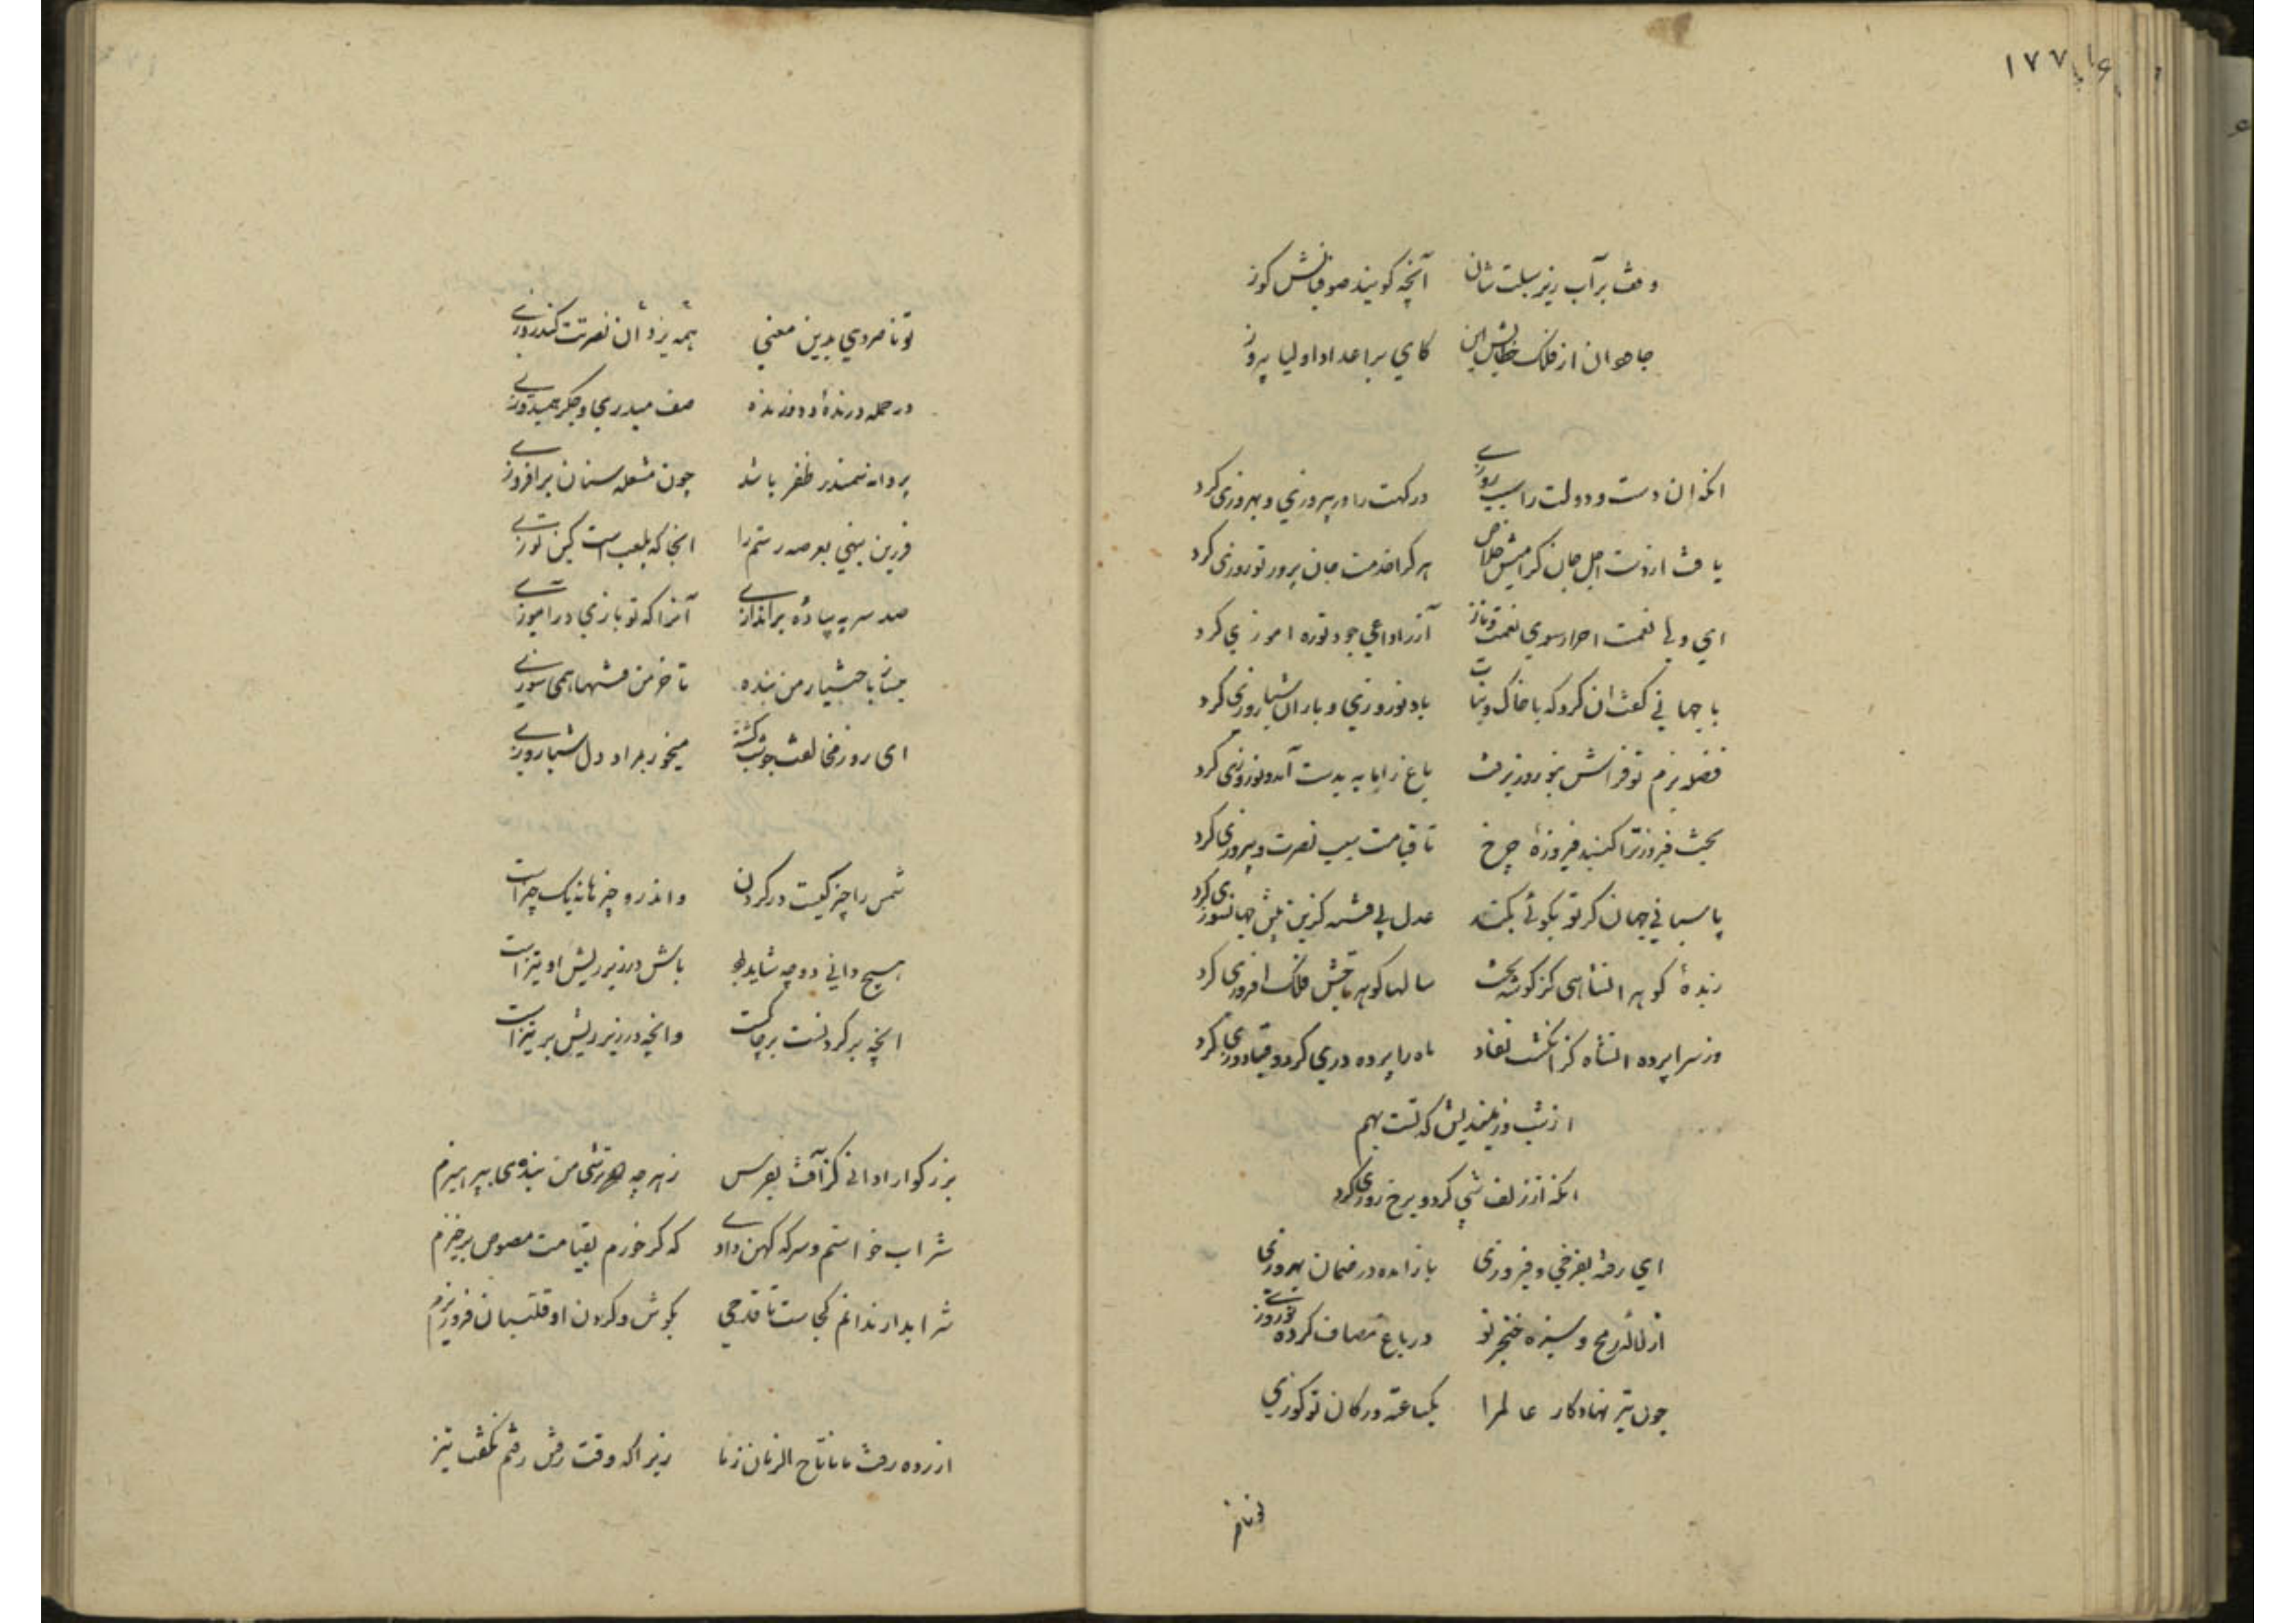 ۱۷۷
وقف بر آب ریز سبلت شان آنچه کویند صوفیانش کوز
جاهوان از فلک خطابش این کای براعدا و اولیا پیروز
انکه ان دست و دولت را سبب روزی در کهت را در پیروزی و بهروزی کرد
یافت از دست اجل جان کرامیش خلاص هر کرا خدمت جان پرور تو روزی کرد
ای ولی نعمت احرار سوی نعمت و ناز آز را داعی جود تو ره اموزی کرد
با جهانی کفت ان کرد که با خاک و نبات باد نوروزی و باران شبا روزی کرد
فضله بزم تو فراش بنوروز برفت باغ را مایه بدست آمد و نوروزی کرد
بخت فیروز ترا کنبد فیروزه چرخ تا قیامت سبب نصرت و پیروزی کرد
پاسبانی جهان کر تو بکوئی بکند عدل بی فتنه کزین پیش جهانسوزی کرد
زبدهٔ کوهر انشاهی کز کوشه بخت سالها کوهر تاجش فلک افروزی کرد
وز سرا پرده انشاه کز انکشت نفاذ ماه را پرده دری کرد و قبا دوزی کرد
از شب و روز میندیش که تست بهم
انکه از زلف شبی کرد و برخ روزی کرد
ای رفته بفرخی و فیروزی باز امده در ضمان بهروزی
از لالهٔ رمح و سبزه خنجر تو در باغ مصاف کرده نوروزی
چون تیر نهاد کار عالم را یکساعته در کمان تو کوزی
تو ناصر
تو ناصر دی بدین معنی همه یزدان نصرتت کند روزی
در حمله درندهٔ و دوزنده صف میدری و جکر همیدوزی
پروانه سمندر ظفر باشد چون مشعله سنان برافروزی
فرزین بنهی بعرصه رستم را انجا که بلعب است کین توزی
صد سر به پیادهٔ براندازی آنرا که تو بازی در اموزی
میساز باختیار من بنده تا خرمن فتنها همی سوزی
ای روز مخالفت چو شب کشته میخور بمراد دل شبا روزی
شمس را چیز کیست در کردن واندرو چیزها نه یک چیز است
هیچ دانی دو چه شاید بود بالش در زیر ریش او تیز است
انچه بر کردنست بر چاکست وانچه در زیر ریش بر تیز است
بزرکوارا دانی کز آفت نقرس ز هرچه ترشی من بنده می بپرهیزم
شراب خواستم و سرکه کهن دادی که کر خورم بقیامت مصوص برخیزم
شرابدار ندانم کجاست تا قدحی بکوش و کردن او قلتبان فرو ریزم
ازرده رفت ما تاج الزمان زما زیرا که وقت رفتن رفتم نکفت تیز